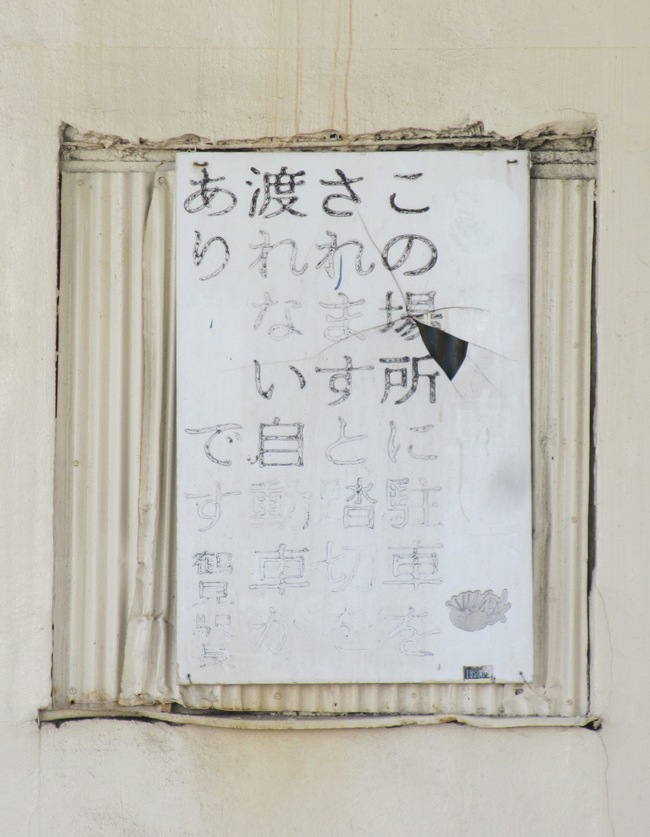 この場所に駐車を
されますと踏切を
渡れない自動車が
あり　　です 鶴見駅長